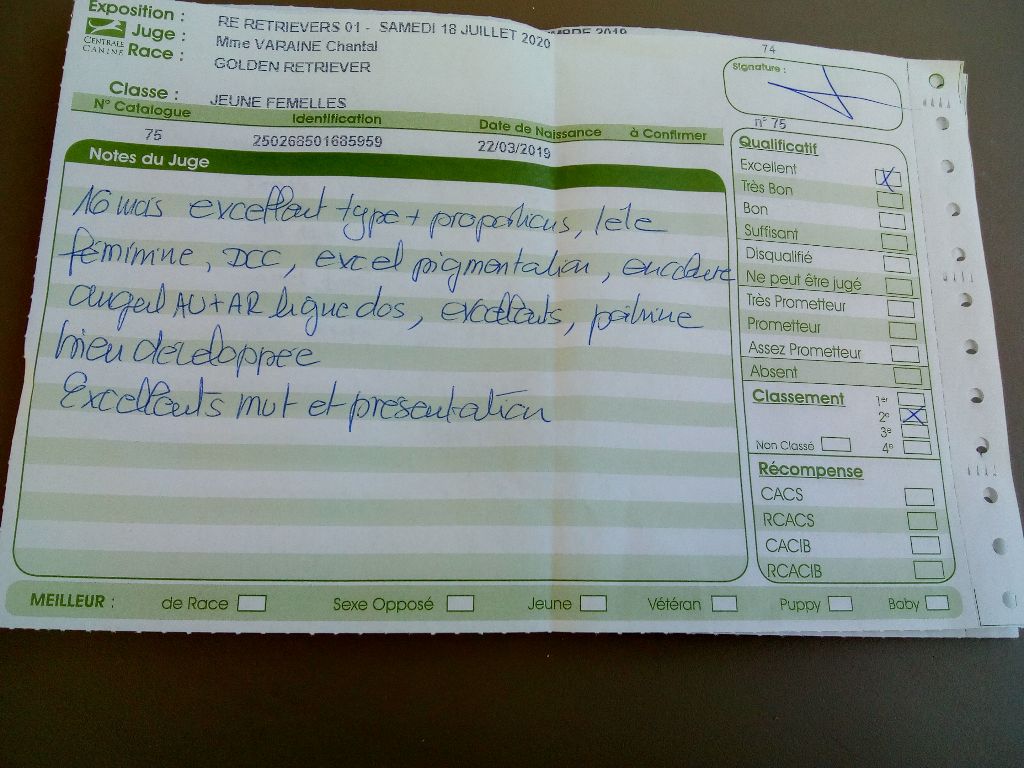 Exposition : RE RETRIEVERS 01 - SAMEDI 18 JUILLET 2020
CENTRALE CANINE
Juge : Mme VARAINE Chantal
Race : GOLDEN RETRIEVER
Classe : JEUNE FEMELLES
N° Catalogue Identification Date de Naissance à Confirmer
75 250268501685959 22/03/2019
Notes du Juge
16 mois excellent type + proportions, tete
féminine, DCC, excel pigmentation, encolure
angul AV+AR ligne dos, excellents, poitrine
bien developpee
Excellents mvt et presentation
74
Signature :
n° 75
Qualificatif
Excellent X
Très Bon
Bon
Suffisant
Disqualifié
Ne peut être jugé
Très Prometteur
Prometteur
Assez Prometteur
Absent
Classement 1er
2e X
3e
Non Classé 4e
Récompense
CACS
RCACS
CACIB
RCACIB
MEILLEUR : de Race Sexe Opposé Jeune Vétéran Puppy Baby